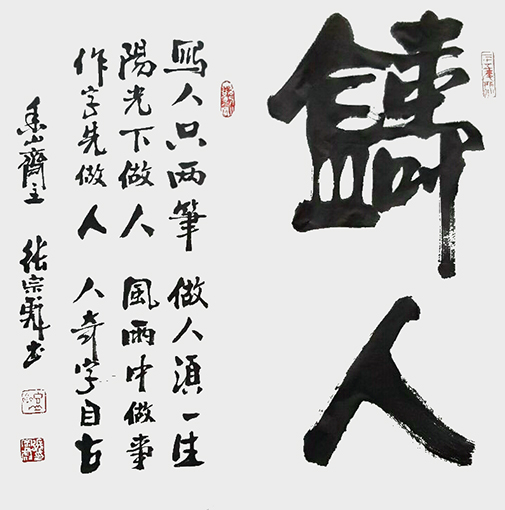 鑄人
寫人只两筆 做人須一生
陽光下做人 風雨中做事
作字先做人 人奇字自古
山齋主 张宗书